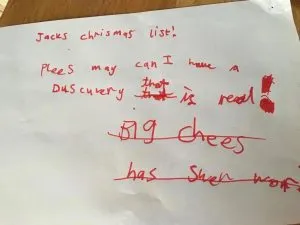 Jacks chrismas list!
Plees may can I have a
Duscuvery that
that is real!
Big chees
has